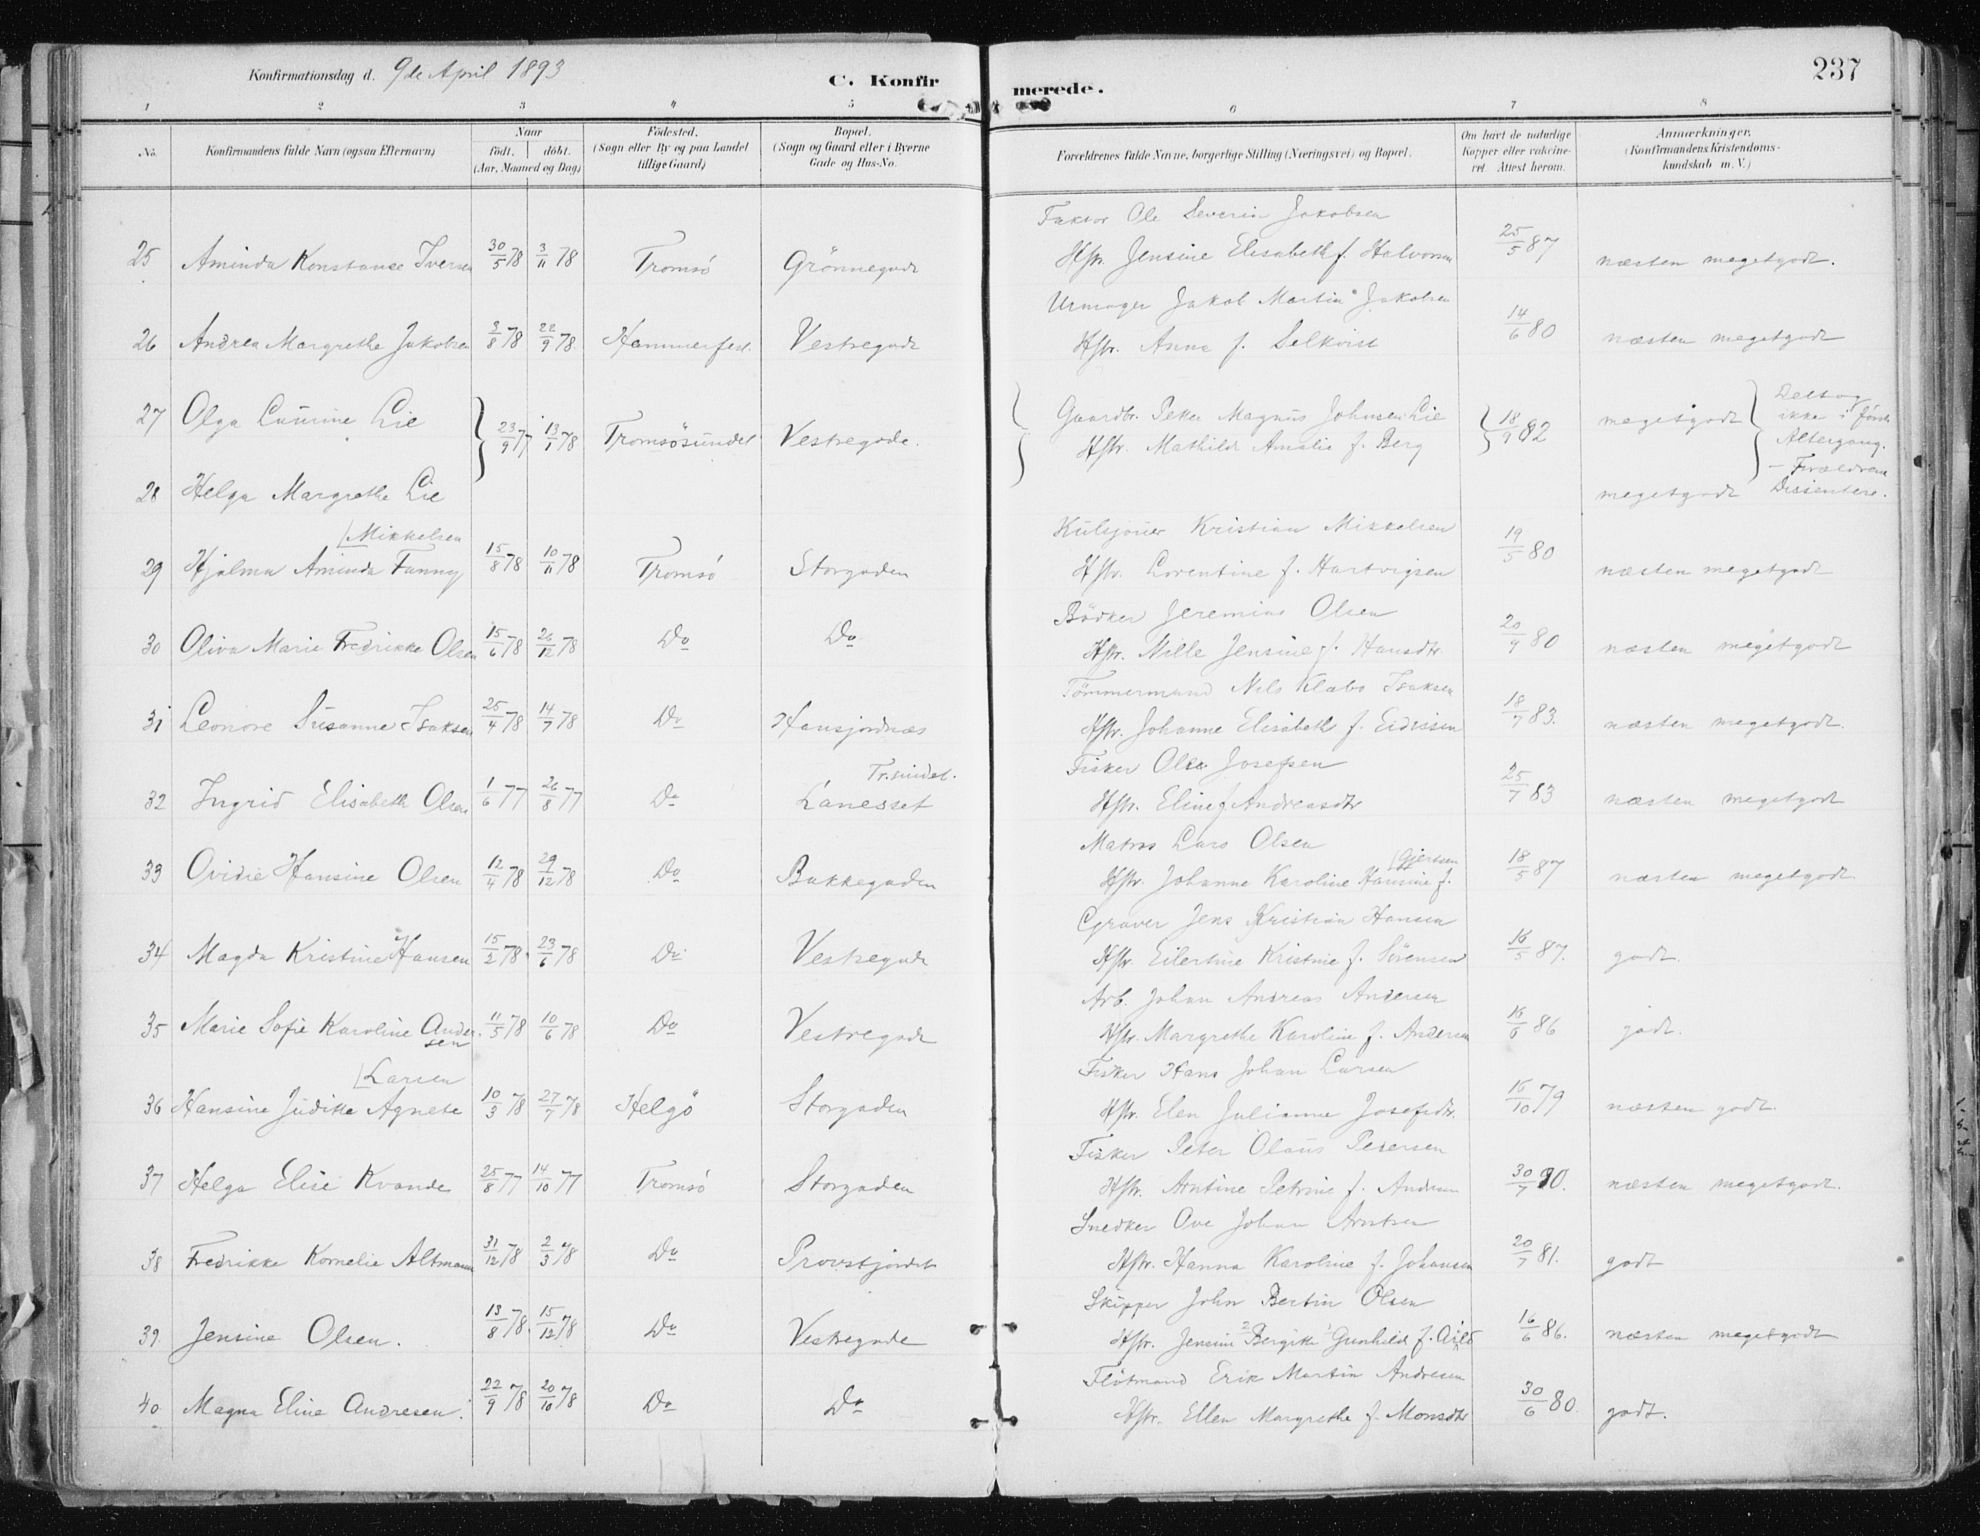 Konfirmationsdag d. 9de April 1893
C. Konfirmerede.
237
1 2 3 4 5 6 7 8
No. Konfirmandens fulde Navn (ogsaa Efternavn) Naar födt. döbt. (Aar, Maaned og Dag) Födested. (Sogn eller By og paa Landet tillige Gaard) Bopæl. (Sogn og Gaard eller i Byerne Gade og Hus-No. Forældrenes fulde Navne, borgerlige Stilling (Næringsvei) og Bopæl. Om havt de naturlige Kopper eller vakcineret. Attest herom. Anmærkninger. (Konfirmandens Kristendomskundskab m. V.)
Faktor Ole Severin Jakobsen
25 Aminda Konstanse Iversen 30/5 78 3/11 78 Tromsö Grönnegade Hstr. Jensine Elisabeth f. Halvorsen 25/5 87 næsten megetgodt.
Urmager Jakob Martin Jakobsen
26 Andrea Margrethe Jakobsen 3/8 78 22/9 78 Hammerfest. Vestregade Hstr. Anna f. Selkvist 14/6 80 næsten megetgodt
27 Olga Laurine Lie 23/9 77 13/1 78 Tromsösundet Vestregade. Gaardbr. Peter Magnus Johnsen Lie 18/9 82 megetgodt Deltog ikke i förste Altergang. – Forældrene Dissentere.
Hstr. Mathilde Amalie f. Berg
28 Helga Margrethe Lie megetgodt
Mikkelsen Kulsjouer Kristian Mikkelsen
29 Hjalma Aminda Fanny 15/8 78 10/11 78 Tromsö Storgaden Hstr. Lorentine f. Hartvigsen 19/5 80 næsten megetgodt
Bödker Jeremias Olsen
30 Oliva Marie Fredrikke Olsen 15/6 78 26/12 78 Do Do Hstr. Nille Jensine f. Hansdtr. 20/9 80 næsten megetgodt
Tömmermand Nils Klæbo Isaksen
31 Leonore Susanne Isaksen 25/4 78 14/7 78 Do Hansjordnæs Hstr. Johanne Elisabeth f. Eidissen 18/7 83. næsten megetgodt.
Tr.sundet. Fisker Ole Josefsen
32 Ingrid Elisabeth Olsen 1/6 77 26/8 77 Do Lanesset Hstr. Eline f. Andreasdtr 25/7 83 næsten megetgodt
Matros Lars Olsen
33 Ovidie Hansine Olsen 12/4 78 29/12 78 Do Bakkegaden Hstr. Johanna Karoline Hansine f. Gjertsen 18/5 87 næsten megetgodt.
Cgraver Jens Kristian Hansen
34 Magda Kristine Hansen 15/2 78 23/6 78 Do Vestregade Hstr. Eilertine Kristine f. Sörensen 16/5 87. godt.
Arb. Johan Andreas Andersen
35 Marie Sofie Karoline Andersen 11/5 78 10/6 78 Do Vestregade Hstr. Margrethe Karoline f. Andersen 16/6 86 godt.
Larsen Fisker Hans Johan Larsen
36 Hansine Juditte Agnete 10/3 78 27/7 78 Helgö Storgaden Hstr. Elen Julianne Josefsdtr. 16/10 79 næsten godt.
Fisker Peter Olaus Pedersen
37 Helga Elise Kvande 25/8 77 14/10 77 Tromsö Storgaden Hstr. Arntine Petrine f. Andersen 30/7 80. næsten megetgodt.
Snedker Ove Johan Arntsen
38 Fredrikke Kornelie Altmann 31/12 78 2/3 78 Do Provstjordet Hstr. Hanna Karoline f. Johansen 20/7 81. godt
Skipper John Bertin Olsen
39. Jensine Olsen. 13/8 78. 15/12 78 Do Vestregade Hstr. Jensine Bergitte Gunhild f. 16/6 86. næsten megetgodt
Flötmand Erik Martin Andresen
40 Magna Eline Andresen. 22/9 78 20/10 78 Do Do Hstr. Ellen Margrethe f. Monsdtr 30/6 80. godt.